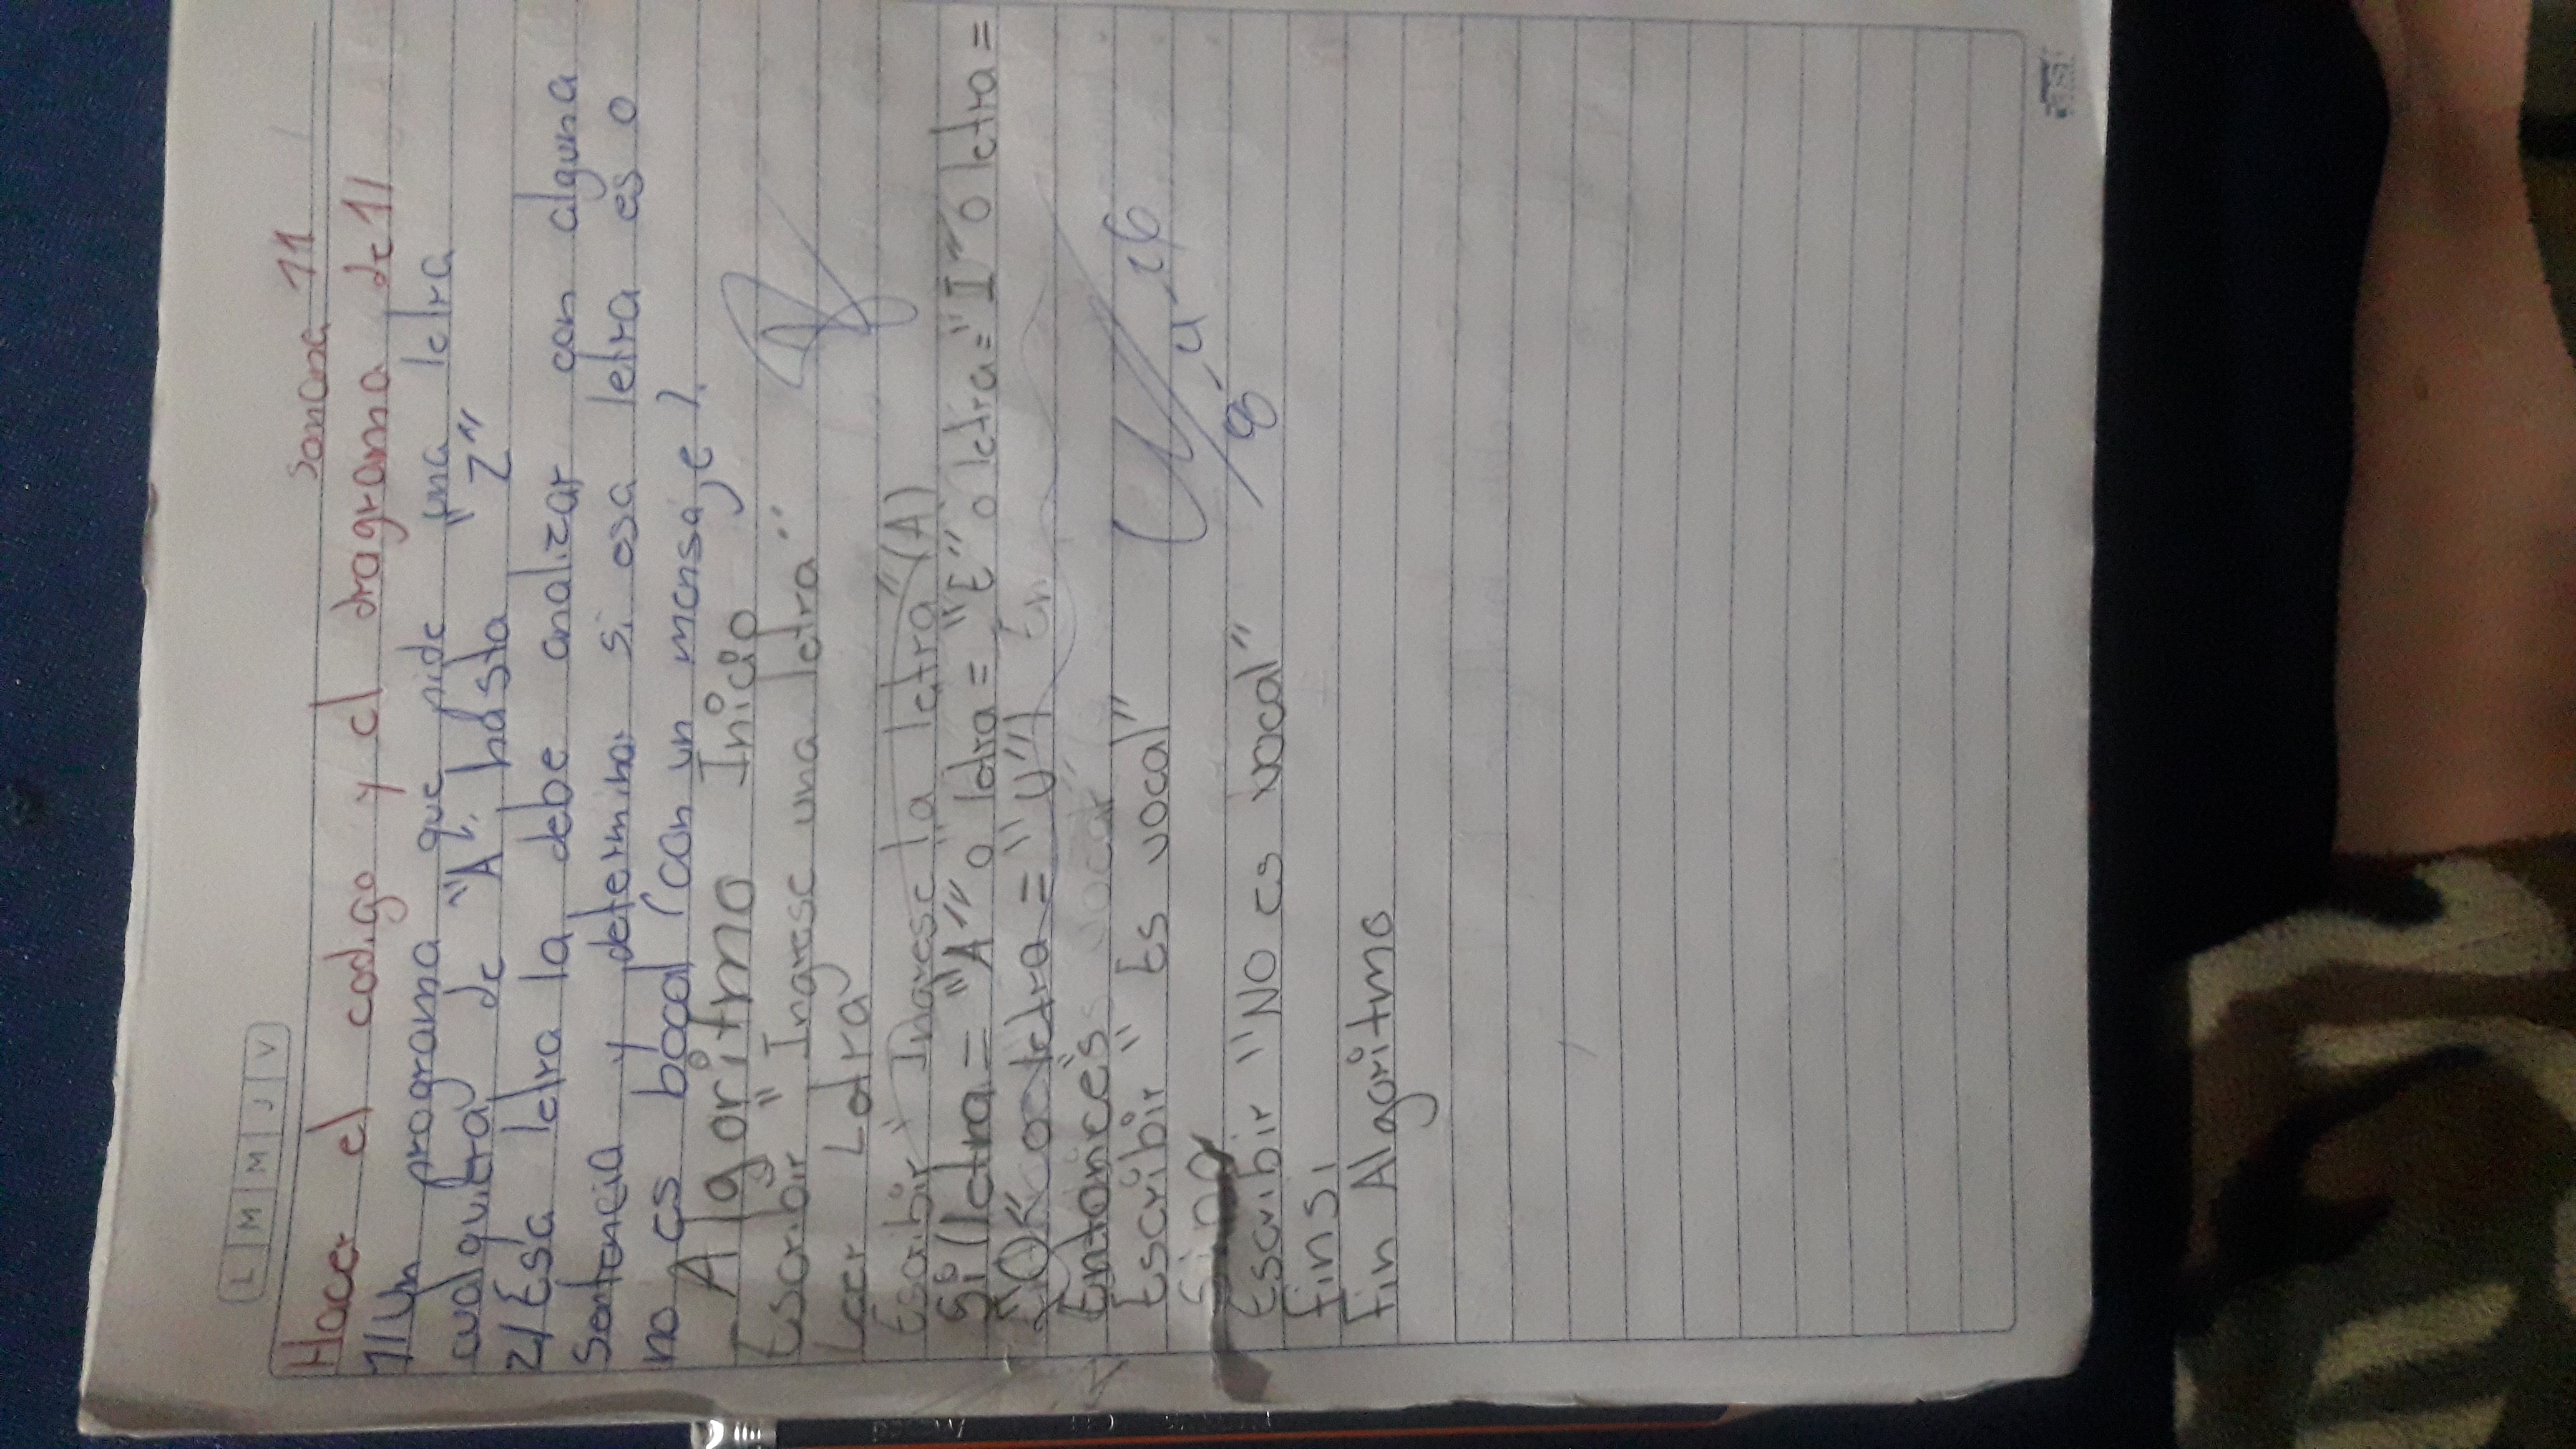 L M M J V
Semana 11
Hacer el codigo y el diagrama de 1/
1/ Un programa que pide "una letra
cualquiera" de "A", hasta "Z"
2/ Esa letra la debe analizar con alguna
Sentencia y determinar si esa letra es o
no es bocal (con un mensaje).
Algoritmo Inicio
Escribir "Ingrese una letra"
Leer Letra
Escribir "Ingrese la letra" (A)
Si (letra = "A" o letra = "E" o letra = "I" o letra =
"O" o letra = "U")
Entonces
Escribir "Es vocal"
Sino
Escribir "No es vocal"
Finsi
Fin Algoritmo
8-4-26